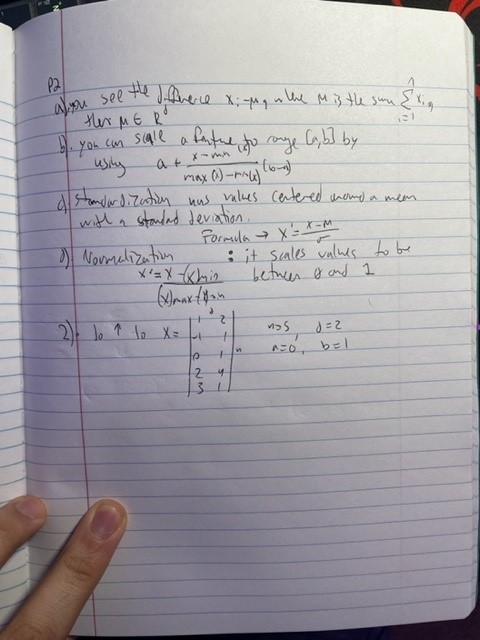 P2
a) you see the difference xi - μ, where μ is the sum Σ xi,
i=1
then μ ∈ R^d
b). you can scale a feature to range [a,b] by
using a + x - min / max(x) - min(x) (b-a)
c) Standardization has values centered around a mean
with a standard deviation.
Formula → X' = x - μ / σ
d) Normalization : it scales values to be
x' = x - (x)min / (x)max - (x)min between 0 and 1
2). to X =
1 2
-1 1
0 1
2 4
3 1
n n=5, d=2
a=0, b=1